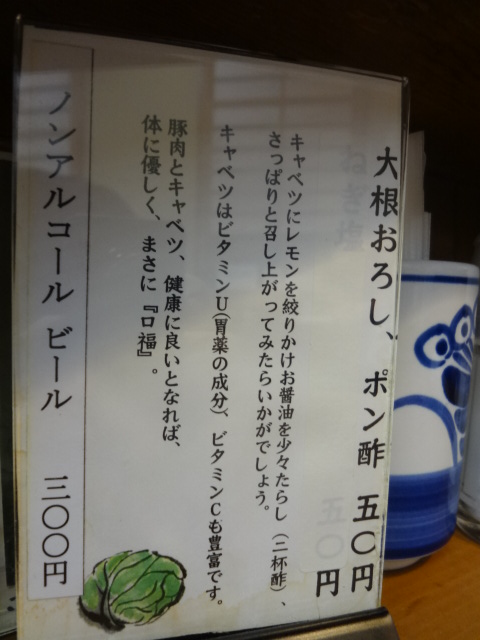 大根おろし、ポン酢 五〇円
ねぎ塩 五〇円
キャベツにレモンを絞りかけお醤油を少々たらし（二杯酢）、
さっぱりと召し上がってみたらいかがでしょう。
キャベツはビタミンU(胃薬の成分)、ビタミンCも豊富です。
豚肉とキャベツ、健康に良いとなれば、
体に優しく、まさに『口福』。
ノンアルコール ビール 三〇〇円